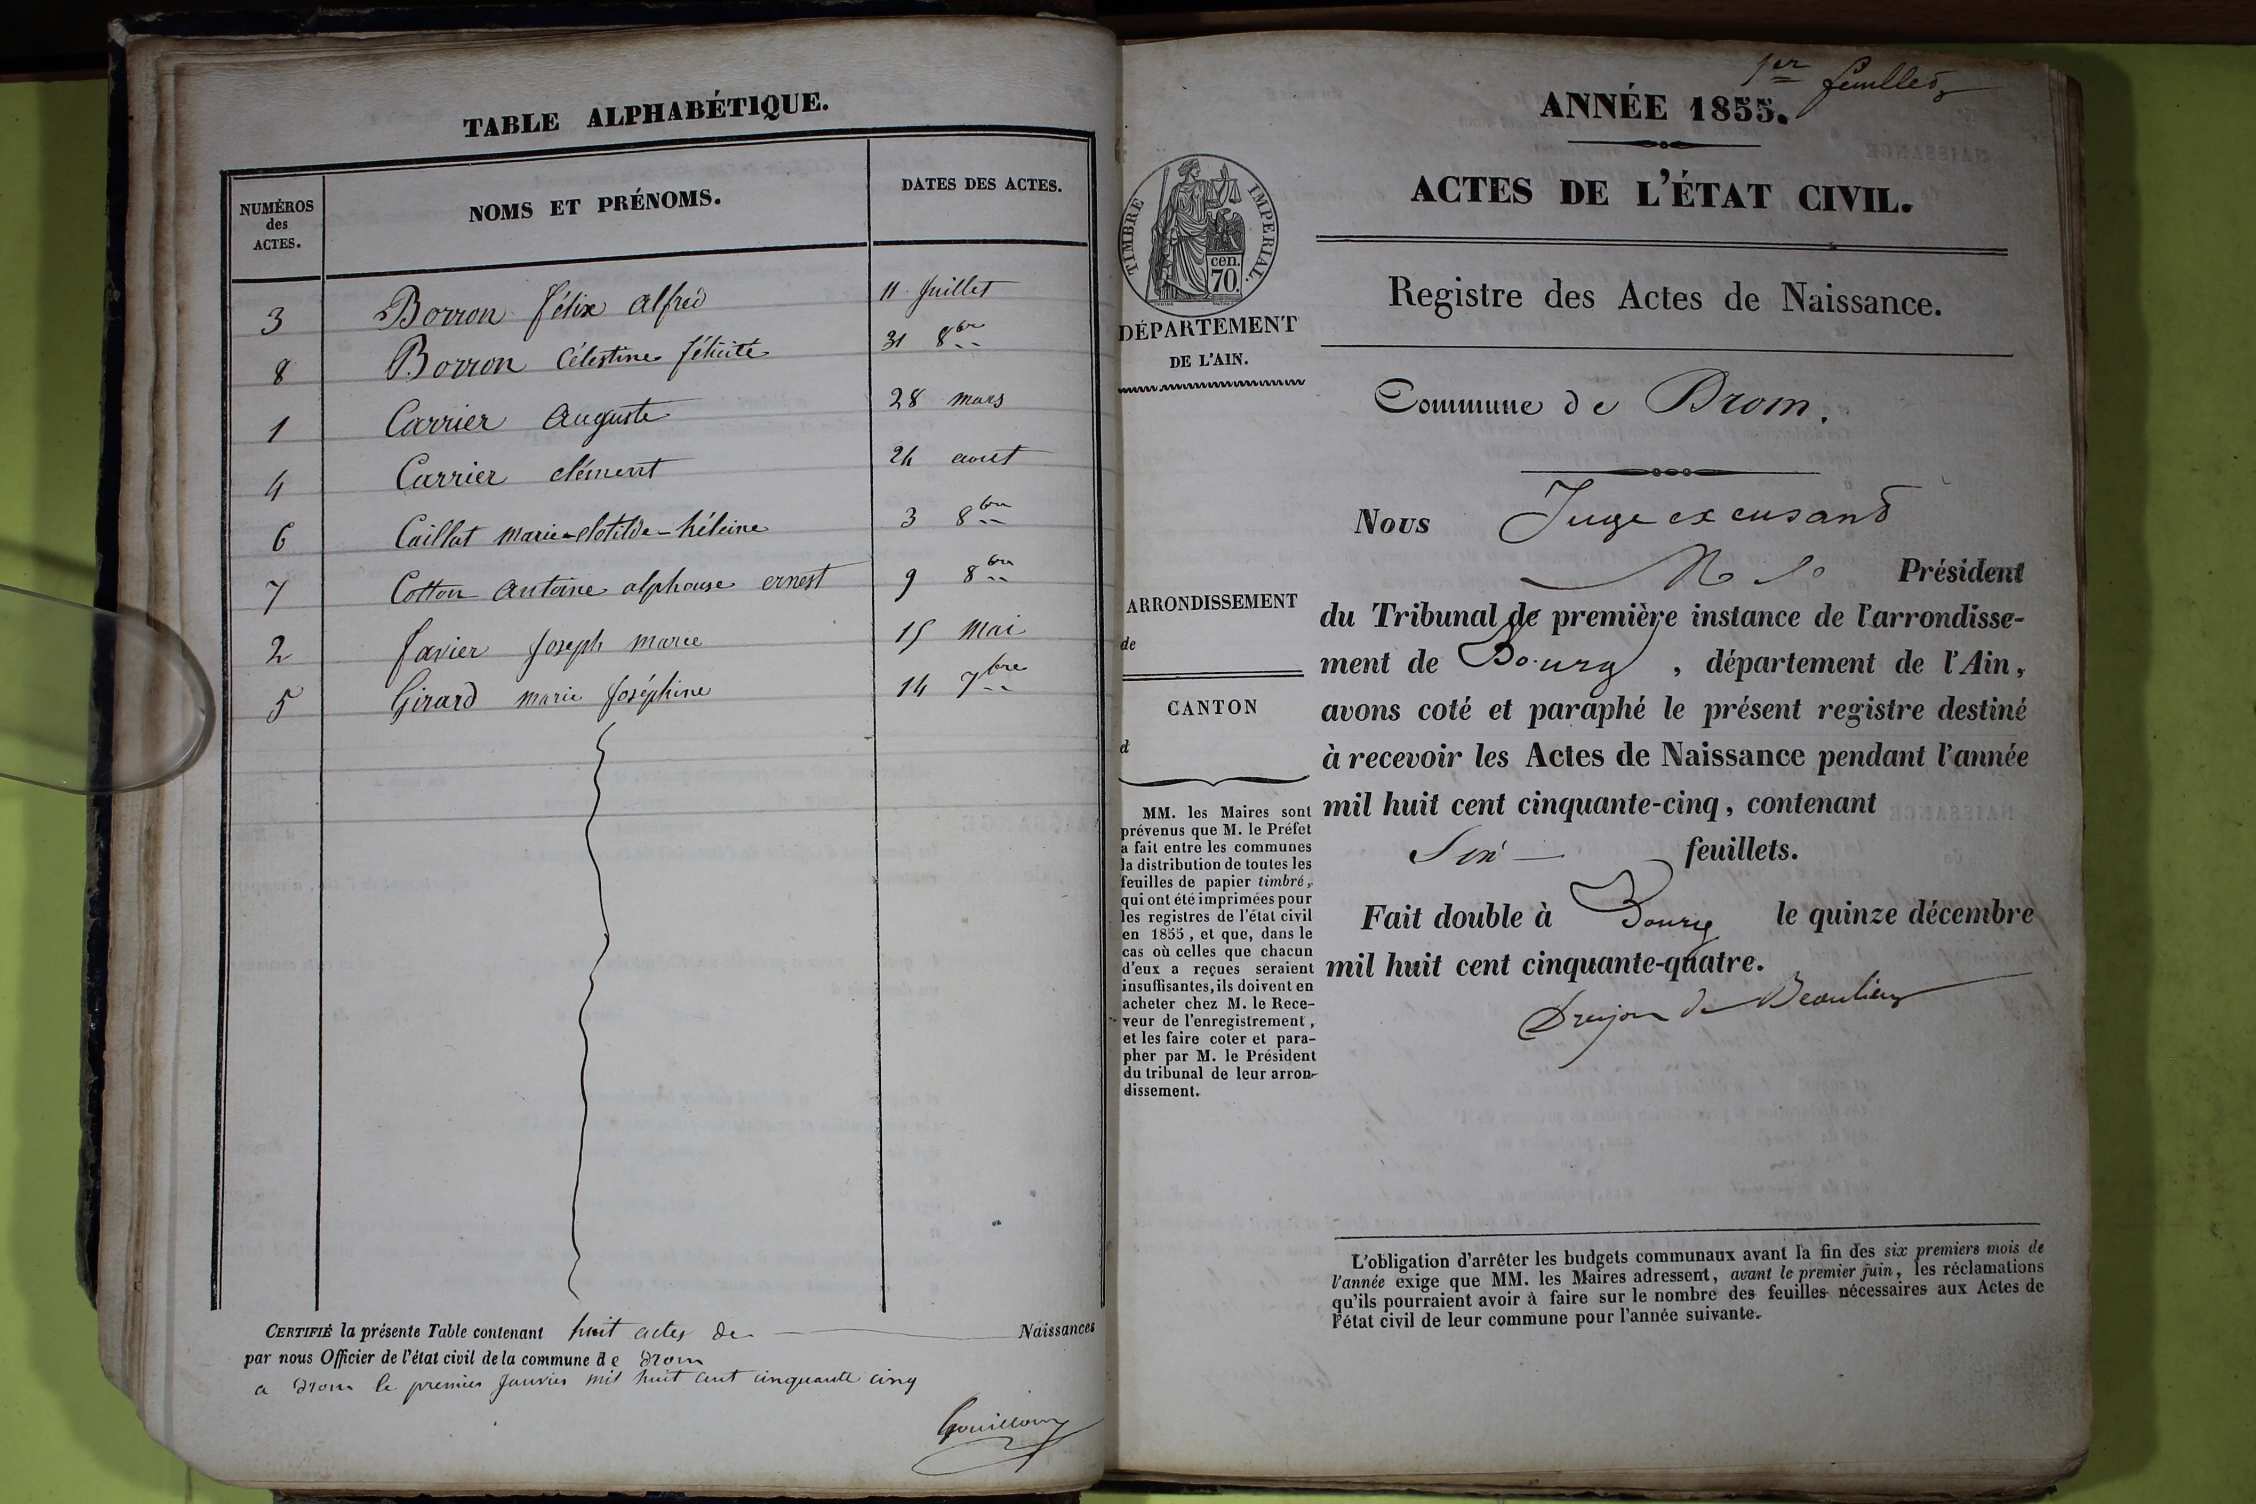 TABLE ALPHABÉTIQUE.
NUMÉROS des ACTES. NOMS ET PRÉNOMS. DATES DES ACTES.
3 Borron félix alfred 11 Juillet
8 Borron Célestine félicité 31 8bre
1 Carrier Auguste 28 mars
4 Carrier clément 24 aout
6 Caillat marie-clotilde-héleine 3 8bre
7 Cotton Antoine alphonse ernest 9 8bre
2 favier Joseph marie 15 Mai
5 Girard marie Joséphine 14 7bre
CERTIFIÉ la présente Table contenant huit actes de Naissances
par nous Officier de l'état civil de la commune de Drom
a Drom le premier Janvier mil huit cent cinquante cinq
Gouilloux
1er feuillet
ANNÉE 1855.
ACTES DE L'ÉTAT CIVIL.
TIMBRE IMPERIAL.
cen.
70.
DÉPARTEMENT
DE L'AIN.
Registre des Actes de Naissance.
Commune de Drom.
ARRONDISSEMENT
de
CANTON
d
MM. les Maires sont
prévenus que M. le Préfet
a fait entre les communes
la distribution de toutes les
feuilles de papier timbré,
qui ont été imprimées pour
les registres de l'état civil
en 1855, et que, dans le
cas où celles que chacun
d'eux a reçues seraient
insuffisantes, ils doivent en
acheter chez M. le Rece-
veur de l'enregistrement,
et les faire coter et para-
pher par M. le Président
du tribunal de leur arron-
dissement.
Nous Juge excusant
Président
du Tribunal de première instance de l'arrondisse-
ment de Bourg, département de l'Ain,
avons coté et paraphé le présent registre destiné
à recevoir les Actes de Naissance pendant l'année
mil huit cent cinquante-cinq, contenant
Six feuillets.
Fait double à Bourg le quinze décembre
mil huit cent cinquante-quatre.
Drujon de Beaulieu
L'obligation d'arrêter les budgets communaux avant la fin des six premiers mois de
l'année exige que MM. les Maires adressent, avant le premier juin, les réclamations
qu'ils pourraient avoir à faire sur le nombre des feuilles nécessaires aux Actes de
l'état civil de leur commune pour l'année suivante.